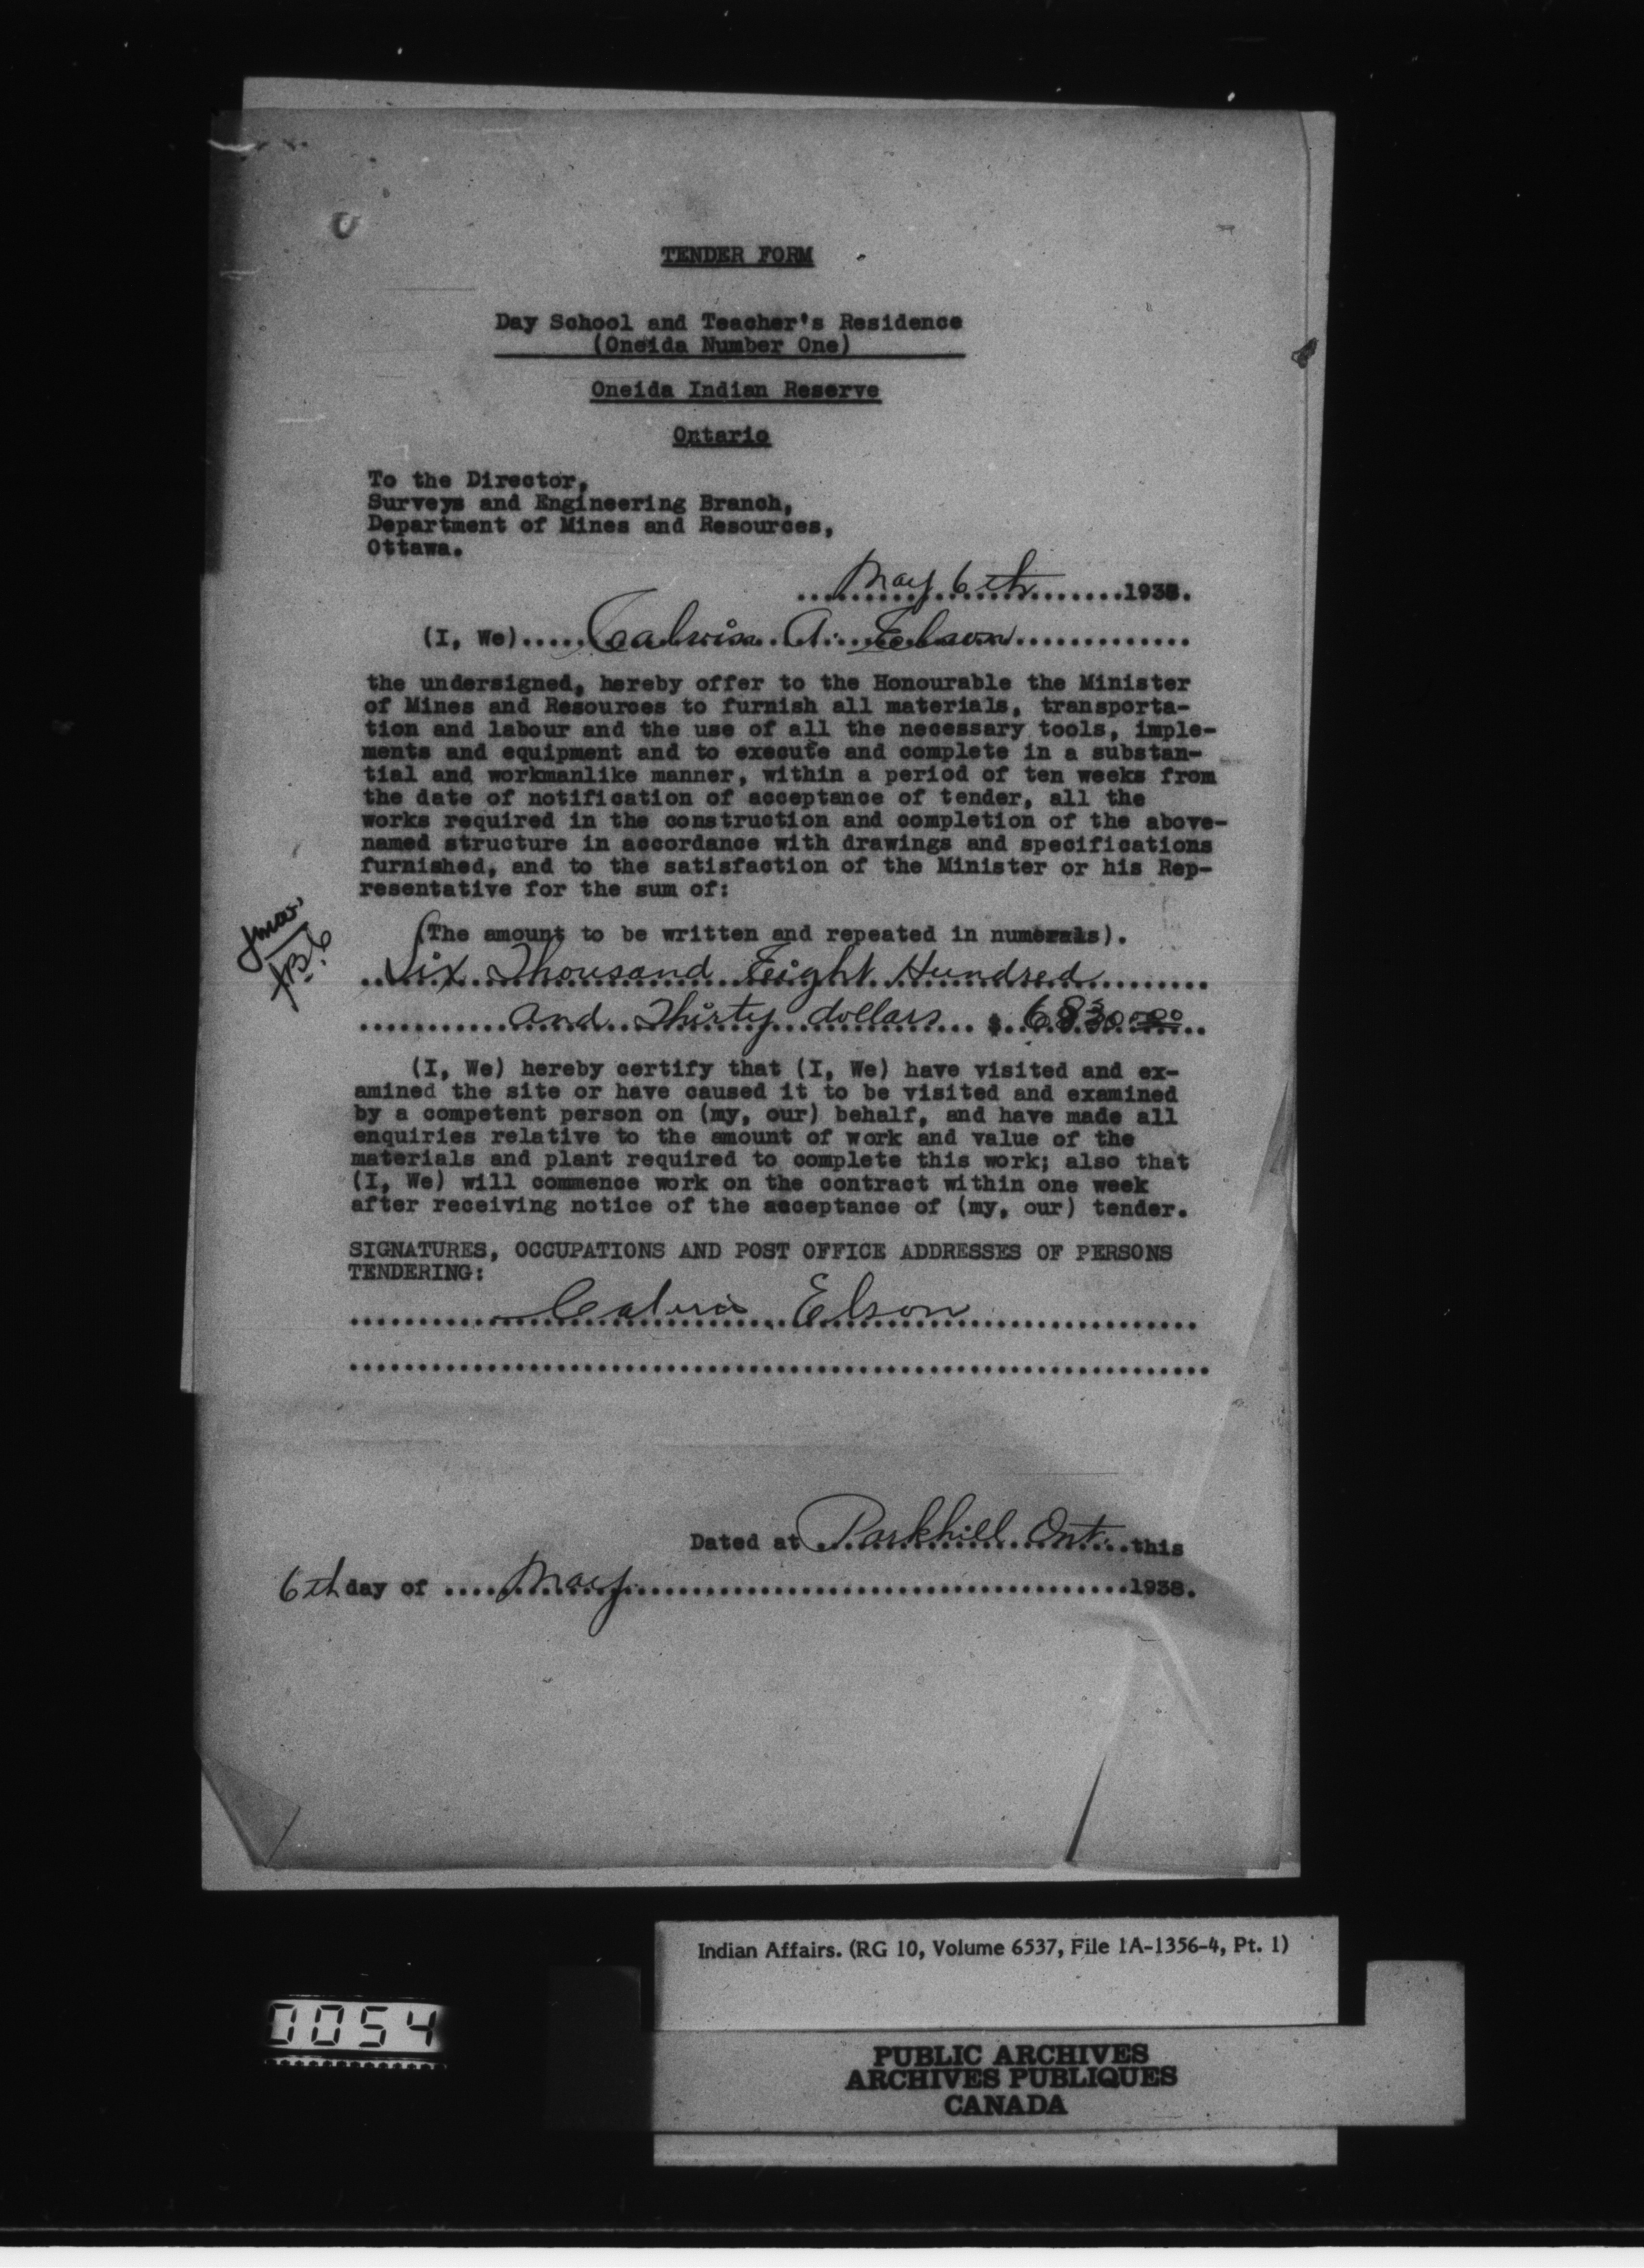 TENDER FORM
Day School and Teacher's Residence
(Oneida Number One)
Oneida Indian Reserve
Ontario
To the Director,
Surveys and Engineering Branch,
Department of Mines and Resources,
Ottawa.
....May 6th........1938.
(I, We).....Calvin A. Elson.............
the undersigned, hereby offer to the Honourable the Minister
of Mines and Resources to furnish all materials, transporta-
tion and labour and the use of all the necessary tools, imple-
ments and equipment and to execute and complete in a substan-
tial and workmanlike manner, within a period of ten weeks from
the date of notification of acceptance of tender, all the
works required in the construction and completion of the above-
named structure in accordance with drawings and specifications
furnished, and to the satisfaction of the Minister or his Rep-
resentative for the sum of:
(The amount to be written and repeated in numerals).
Six Thousand Eight Hundred
and Thirty dollars $ 6830.00
(I, We) hereby certify that (I, We) have visited and ex-
amined the site or have caused it to be visited and examined
by a competent person on (my, our) behalf, and have made all
enquiries relative to the amount of work and value of the
materials and plant required to complete this work; also that
(I, We) will commence work on the contract within one week
after receiving notice of the acceptance of (my, our) tender.
SIGNATURES, OCCUPATIONS AND POST OFFICE ADDRESSES OF PERSONS
TENDERING:
Calvin Elson
Dated at Parkhill Ont. this
6th day of ....May....1938.
Indian Affairs. (RG 10, Volume 6537, File 1A-1356-4, Pt. 1)
0054
PUBLIC ARCHIVES
ARCHIVES PUBLIQUES
CANADA